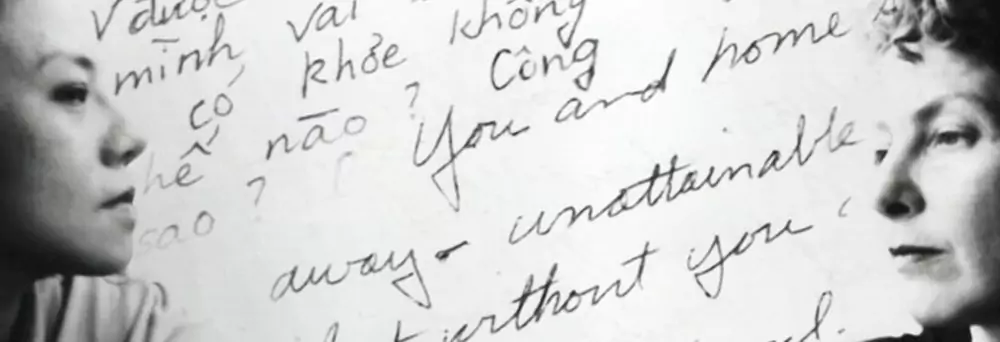 được
mình vài
có khỏe không
nào ? Công
sao ? You and home
away - unattainable,
without you